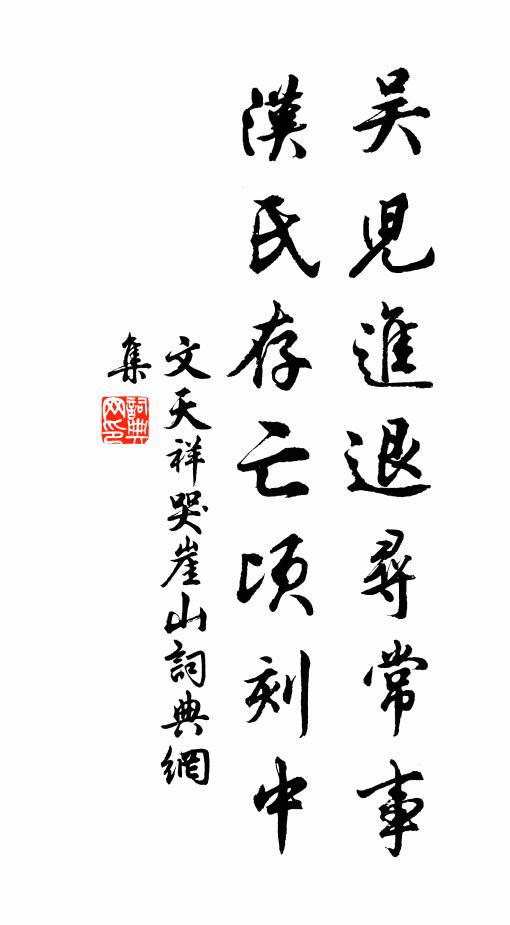 吴兒進退尋常事
漢氏存亡頃刻中
文天祥哭崖山詞典網
集
詞典網印